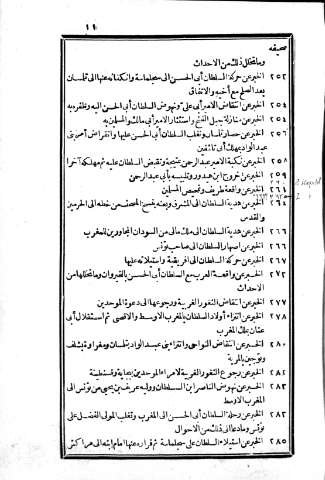 ١١
صحيفه
وما تخلل ذلك من الاحداث
٢٥٢ الخبر عن حركة السلطان أبي الحسن الى سجلماسة وانكفائه عنها الى تلمسان
بعد الصلح مع أخيه والاتفاق
٢٥٤ الخبر عن انتقاض الامير أبي على ونهوض السلطان أبي الحسن اليه وظفره به
٢٥٤ الخبر عن منازلة جبل الفتح واستئثار الامير أبي مالك والمسلمين به
٢٥٦ الخبر عن حصار تلمسان وتغلب السلطان أبي الحسن عليها وانقراض أمر بني
عبد الواد بمهلك أبي تاشفين
٢٥٨ الخبر عن نكبة الامير عبد الرحمن بمتيجة وتقبض السلطان عليه ثم مهلكه آخرا
٢٥٩ الخبر عن خروج ابن هيدور وتلبيسه بأبي عبد الرحمن
٢٦١ الخبر عن واقعة طريف وتمحيص المسلمين
٢٦٤ الخبر عن هدية السلطان الى المشرق وبعثه بنسخ المصحف من خطه الى الحرمين
والقدس
٢٦٦ الخبر عن هدية السلطان الى ملك مالي من السودان المجاورين للمغرب
٢٦٦ الخبر عن اصهار السلطان الى صاحب تونس
٢٦٧ الخبر عن حركة السلطان الى افريقية واستيلائه عليها
٢٧٢ الخبر عن واقعة العرب مع السلطان أبي الحسن بالقيروان وما تخللها من
الاحداث
٢٧٧ الخبر عن انتقاض الثغور الغربية ورجوعها الى دعوة الموحدين
٢٧٨ الخبر عن انتزاء أولاد السلطان بالمغرب الاوسط والاقصى ثم استقلال أبي
عنان بملك المغرب
٢٨٠ الخبر عن انتقاض النواحي وانتزاء بني عبد الواد بتلمسان ومغراوة بشلف
وتوجين بالمرية
٢٨٢ الخبر عن رجوع الثغور الغربية لامراء الموحدين ببجاية وقسنطينة
٢٨٣ الخبر عن نهوض الناصر ابن السلطان ووليه عريف بن يحيى من تونس الى
المغرب الاوسط
٢٨٣ الخبر عن رحلة السلطان أبي الحسن الى المغرب وتغلب المولى الفضل على
تونس وما دعا الى ذلك من الاحوال
٢٨٥ الخبر عن استيلاء السلطان على سجلماسة ثم فراره عنها امام ابنه الى مراكش